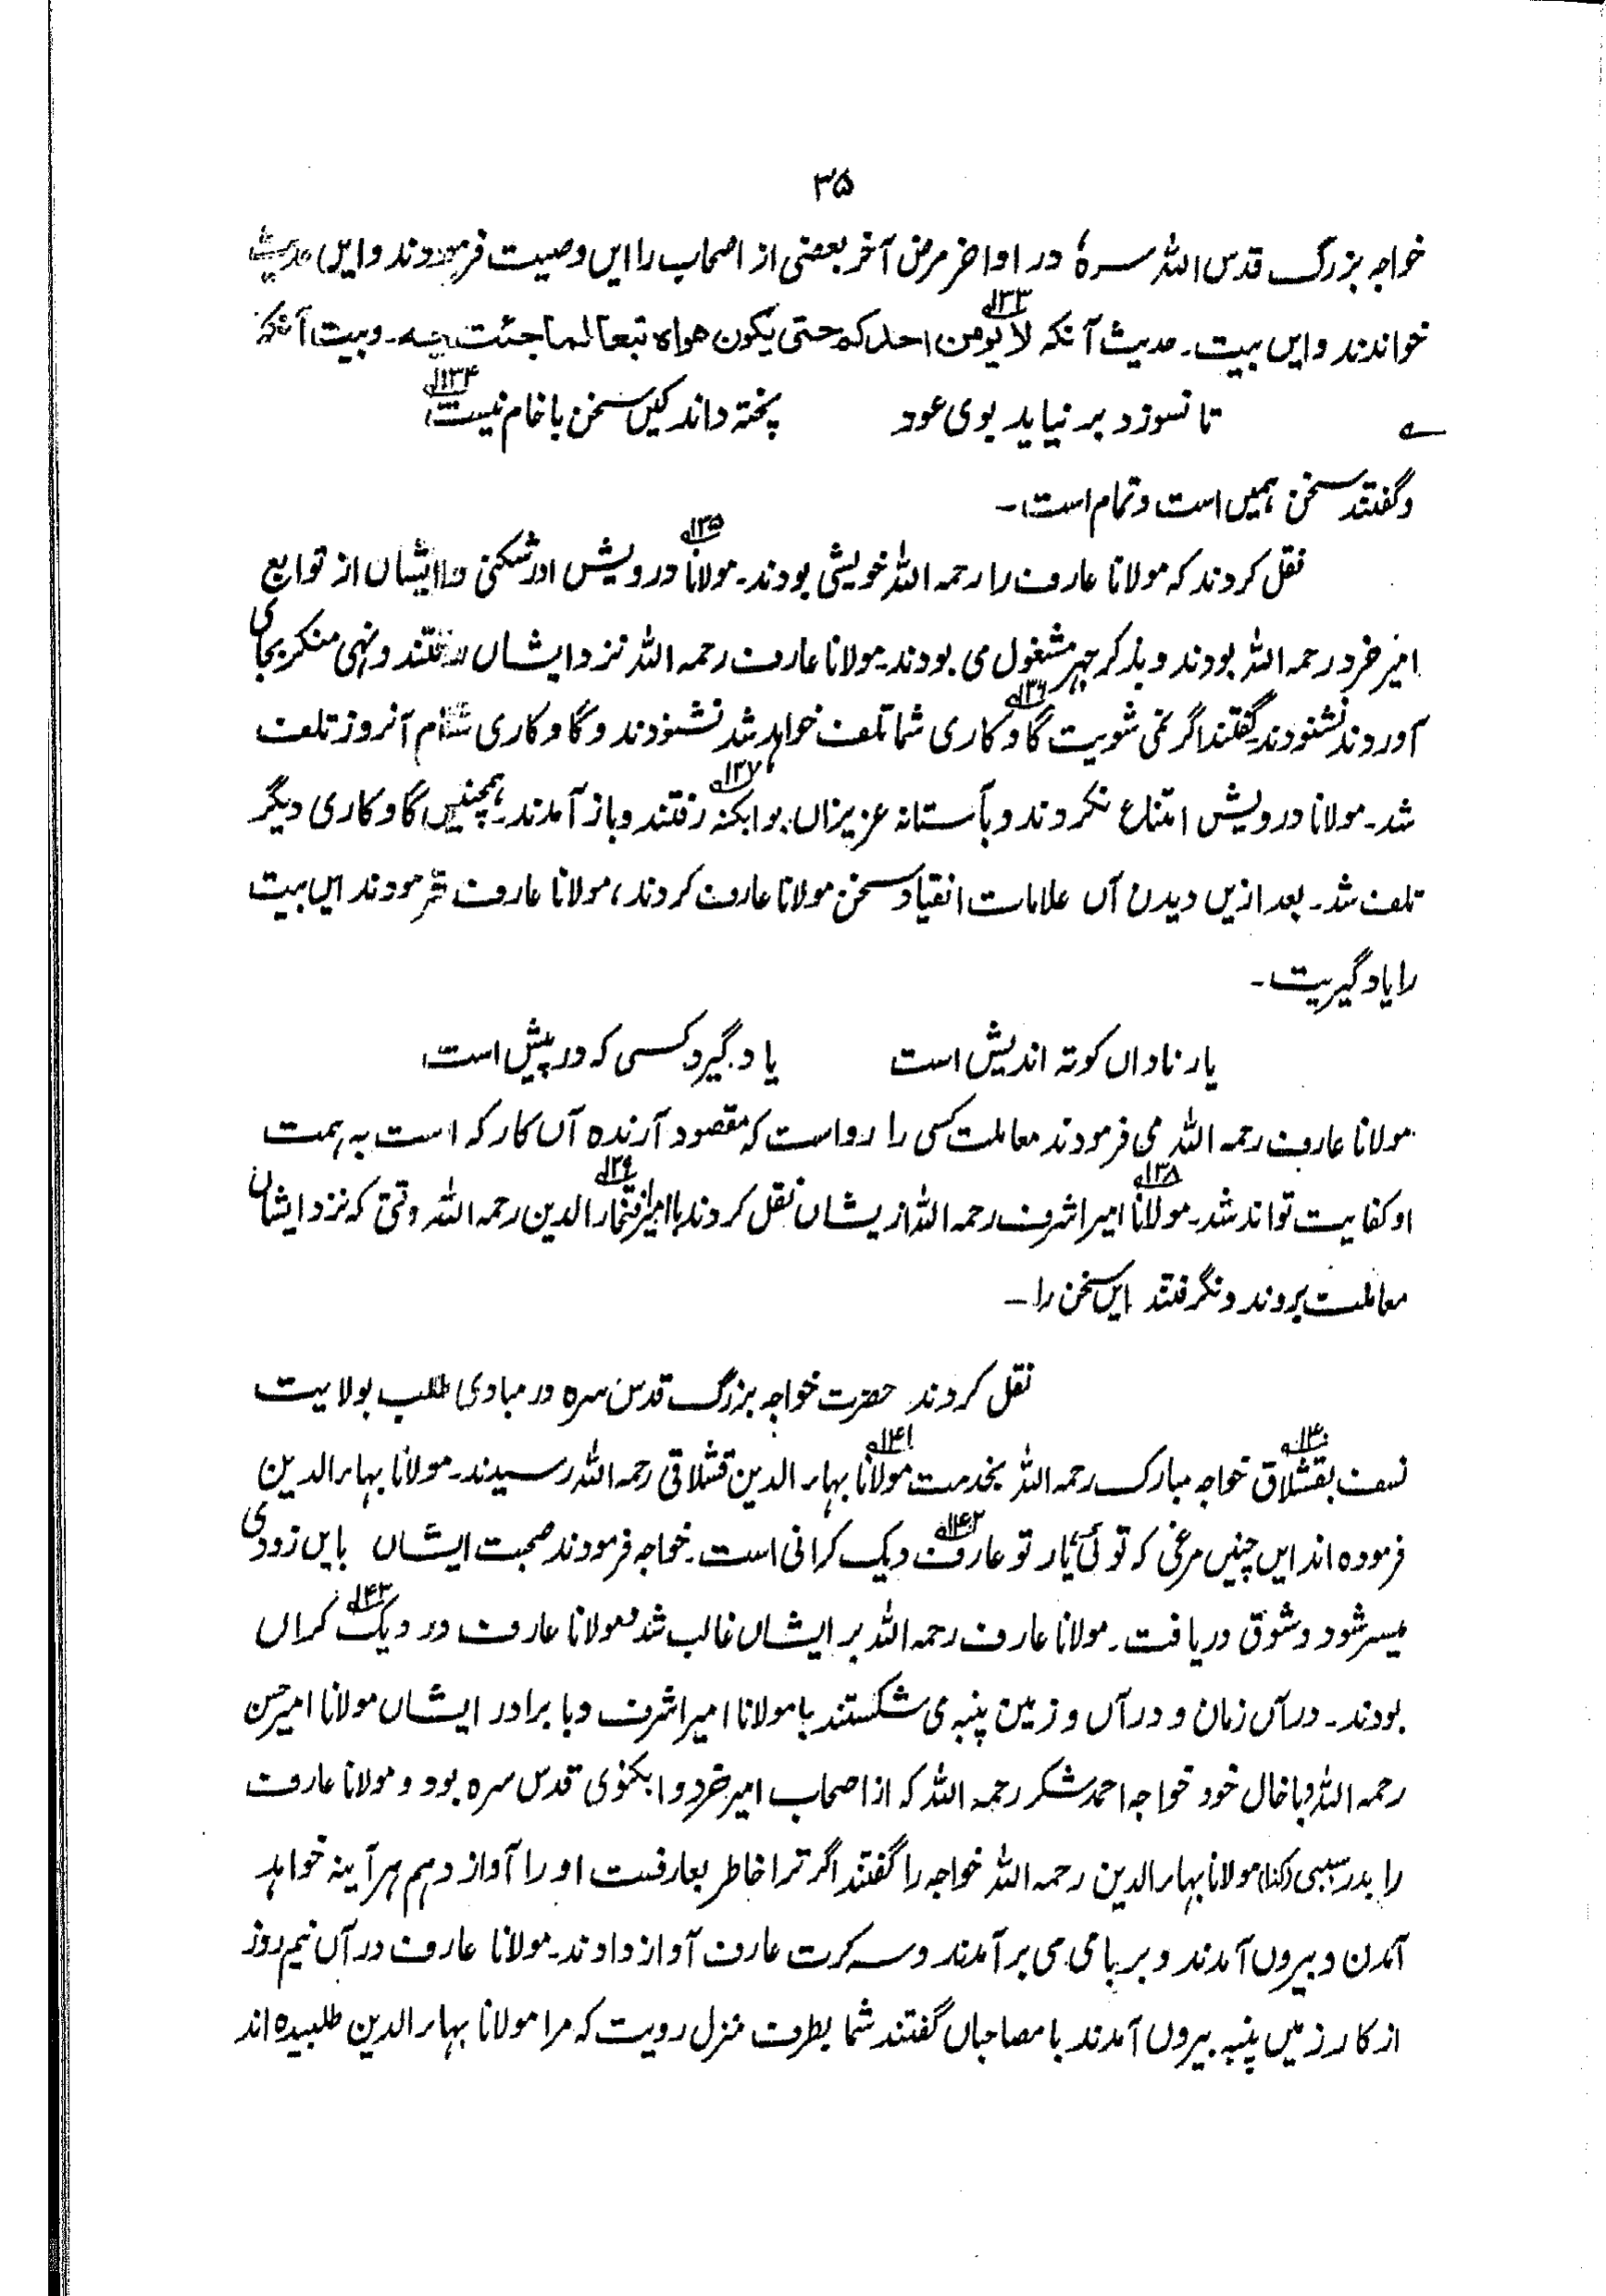 ۳۵
خواجہ بزرگ قدس اللہ سرہٗ در اواخر مرض آخر بعضی از اصحاب را ایں وصیت فرمودند و ایں حدیث
خواندند و ایں بیت۔ حدیث آنکہ لا یومن احدکم حتی یکون ھواہ تبعا لما جئت بہ۔ و بیت آنکہ
۱۳۳
تا نسوزد بر نیاید بوی عود پختہ داند کیں سخن با خام نیست
۱۳۴
وگفتند سخن ہمیں است و تمام است۔
نقل کردند کہ مولانا عارف را رحمہ اللہ خویشی بودند۔ مولانا درویش ادرسکنی و ایشاں از توابع
۱۳۵
امیر خرد رحمہ اللہ بودند و بذکر جہر مشغول می بودند۔ مولانا عارف رحمہ اللہ نزد ایشاں رفتند و نہی منکر بجای
آوردند نشنودند۔ گفتند اگر نمی شنویت گاو کاری شما تلف خواہد شد نشنودند و گاو کاری شام آنروز تلف
۱۳۶
شد۔ مولانا درویش امتناع نکردند و بآستانہ عزیزاں بوابکنہ رفتند و باز آمدند۔ ہمچنیں گاو کاری دیگر
۱۳۷
تلف شد۔ بعد ازیں دیدن آں علامات انقیاد سخن مولانا عارف کردند، مولانا عارف فرمودند ایں بیت
را یاد گیریت۔
یار ناداں کوتہ اندیش است یاد گیرد کسی کہ در پیش است
مولانا عارف رحمہ اللہ می فرمودند معاملت کسی را رواست کہ مقصود آرندہ آں کار کہ است بہ ہمت
او کفایت تواند شد۔ مولانا امیر اشرف رحمہ اللہ ازیشاں نقل کردند با امیر افتخار الدین رحمہ اللہ وقتی کہ نزد ایشاں
۱۳۸ ۱۳۹
معاملت بردند و نگرفتند ایں سخن را۔
نقل کردند حضرت خواجہ بزرگ قدس سرہ در مبادی طلب بولایت
نسف بقشلاق خواجہ مبارک رحمہ اللہ بخدمت مولانا بہاء الدین قشلاقی رحمہ اللہ رسیدند۔ مولانا بہاء الدین
۱۴۰ ۱۴۱
فرمودہ اند ایں چنیں مرغی کہ توئی یار تو عارف دیک کرانی است۔ خواجہ فرمودند صحبت ایشاں بایں زودی
۱۴۲
میسر شود و شوق دریافت۔ مولانا عارف رحمہ اللہ بر ایشاں غالب شد و مولانا عارف در دیک کراں
۱۴۳
بودند۔ در آں زمان و در آں و زمین پنبہ می شکستند با مولانا امیر اشرف و با برادر ایشاں مولانا امیر حسن
رحمہ اللہ و با خال خود خواجہ احمد شکر رحمہ اللہ کہ از اصحاب امیر خرد وابکنوی قدس سرہ بود و مولانا عارف
را بدر سببی (کذا) مولانا بہاء الدین رحمہ اللہ خواجہ را گفتند اگر ترا خاطر بعارفست او را آواز دہم ہر آینہ خواہد
آمدن و بیروں آمدند و بر بامی می بر آمدند و سہ کرت عارف آواز دادند۔ مولانا عارف در آں نیم روز
از کار زمیں پنبہ بیروں آمدند با مصاحباں گفتند شما بطرف منزل رویت کہ مرا مولانا بہاء الدین طلبیدہ اند